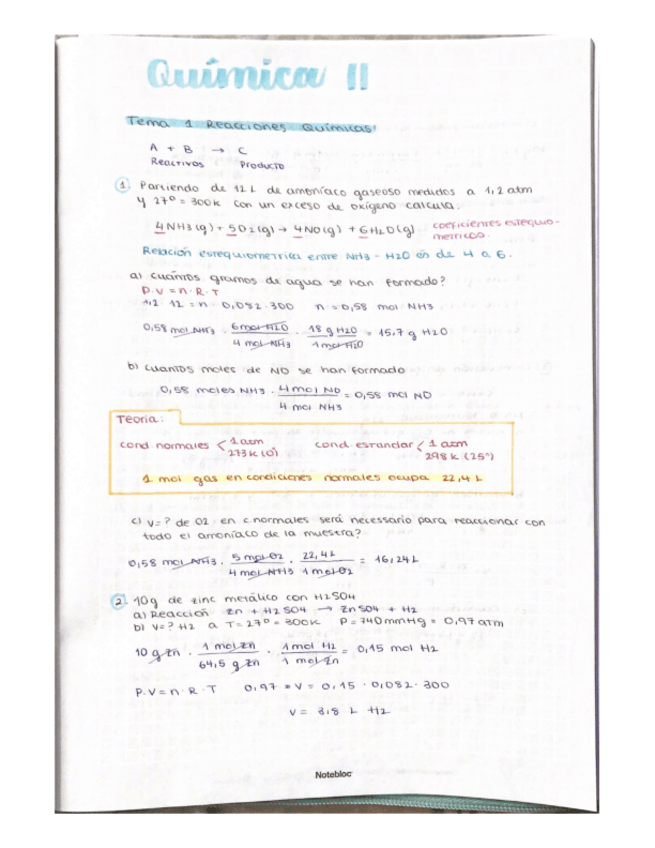 Química II
Tema 1 Reacciones Químicas:
A + B → C
Reactivos Producto
1. Partiendo de 12 L de amoníaco gaseoso medidos a 1,2 atm
y 27º = 300K con un exceso de oxígeno calcula:
4NH3(g) + 5O2(g) → 4NO(g) + 6H2O(g) coeficientes estequio-
métricos.
Relación estequiometrica entre NH3 - H2O es de 4 a 6.
a) cuántos gramos de agua se han formado?
P.V = n.R.T
1,2 · 12 = n · 0,082 · 300 n = 0,58 mol NH3
0,58 mol NH3 · 6 mol H2O / 4 mol NH3 · 18 g H2O / 1 mol H2O = 15,7 g H2O
b) cuantos moles de NO se han formado
0,58 moles NH3 · 4 mol NO / 4 mol NH3 = 0,58 mol NO
Teoría:
cond. normales < 1 atm cond. estandar < 1 atm
273 K (0º) 298 K (25º)
1 mol gas en condiciones normales ocupa 22,4 L
c) V=? de O2 en c.normales será necesario para reaccionar con
todo el amoníaco de la muestra?
0,58 mol NH3 · 5 mol O2 / 4 mol NH3 · 22,4 L / 1 mol O2 = 16,24 L
2. 10g de zinc metálico con H2SO4
a) Reacción Zn + H2SO4 → ZnSO4 + H2
b) V=? H2 a T=27º = 300K P=740mmHg = 0,97 atm
10 g Zn · 1 mol Zn / 64,5 g Zn · 1 mol H2 / 1 mol Zn = 0,15 mol H2
P.V = n.R.T 0,97 · V = 0,15 · 0,082 · 300
V = 3,8 L H2
Notebloc